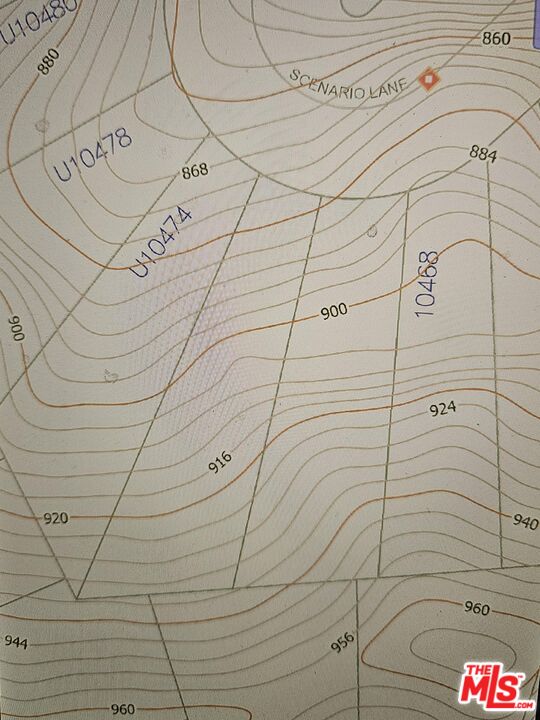 U10480
860
880
SCENARIO LANE
U10478
884
868
U10474
10468
900
900
924
916
920
940
960
944
956
960
THE
MLS
.COM